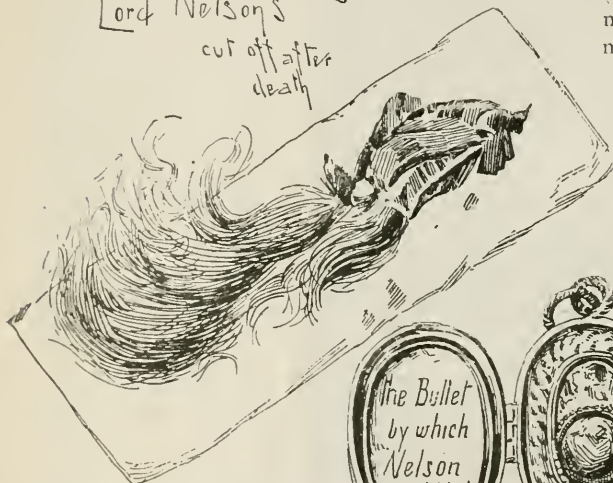 Lord Nelson's
cut off after
death
The Bullet
by which
Nelson